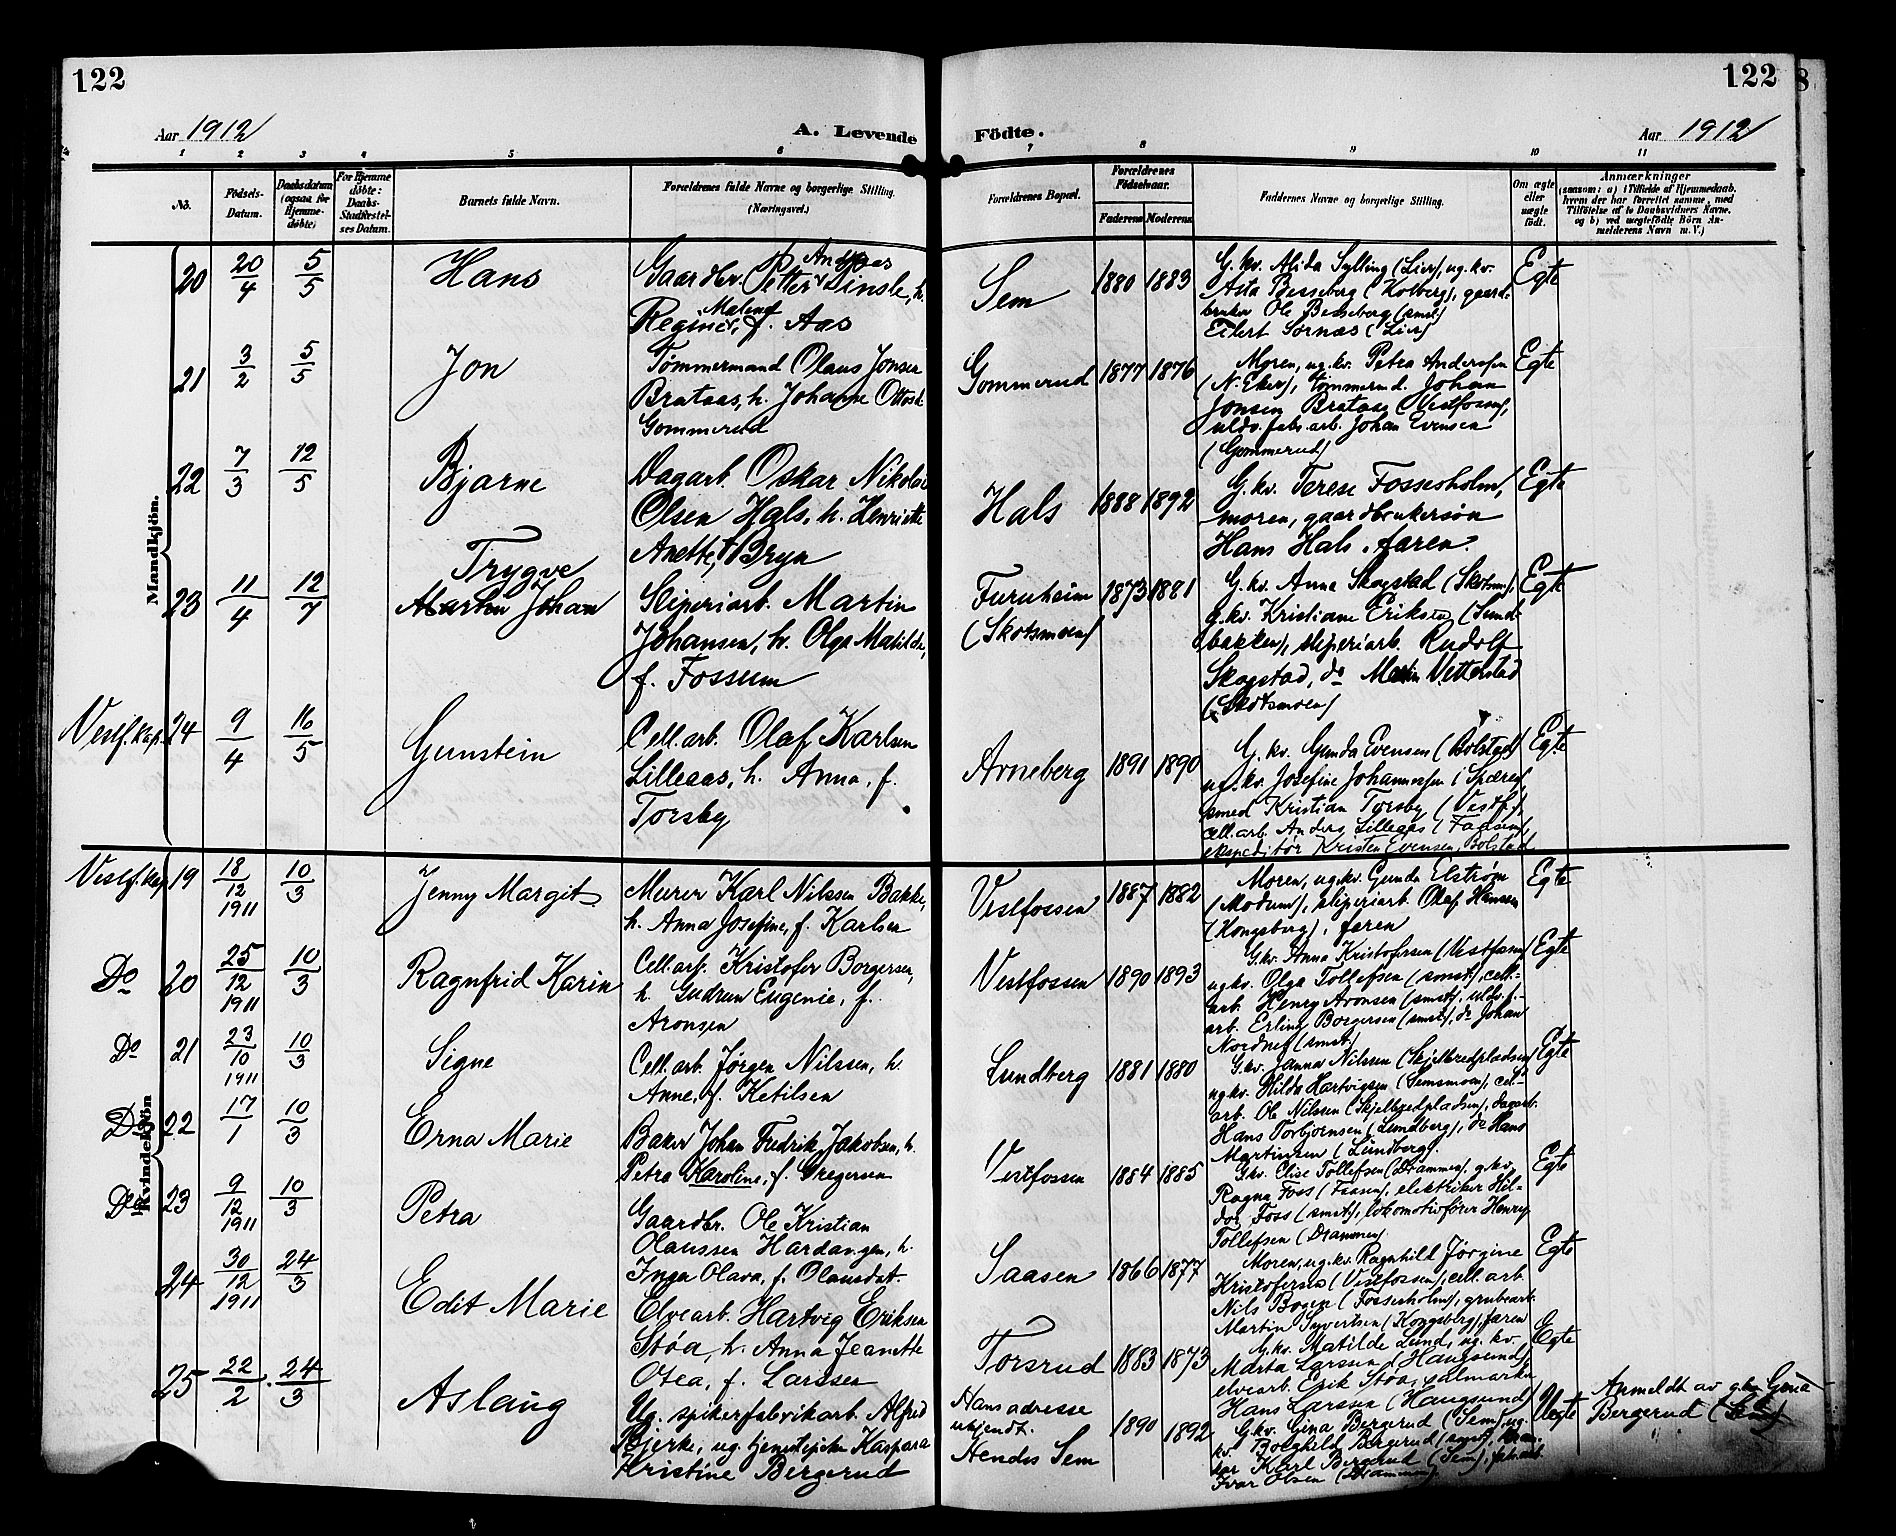 122
122
Aar 1912
A. Levende Födte.
Aar 1912
1 2 3 4 5 6 7 8 9 10 11
No.
Födsels-Datum.
Daabsdatum (ogsaa for Hjemme-døbte)
For Hjemme døbte: Daabs-Stadfæstel-ses Datum.
Barnets fulde Navn.
Forældrenes fulde Navne og borgerlige Stilling.
(Næringsvei.)
Forældrenes Bopæl.
Forældrenes Fødselsaar.
Faderens Moderens
Faddernes Navne og borgerlige Stilling.
Om ægte eller uægte født.
Anmærkninger
(saasom: a) i Tilfælde af Hjemmedaab, hvem der har forrettet samme, med Tilføielse af to Daabsvidners Navne, og b) ved uægtefødte Børn An-melderens Navn m. V.)
Mandkjön.
20 20/4 5/5 Hans
Gaardbr. Petter Andreas Linsle, h.
Regine Malene, f. Aas
Sem 1880 1883
G.kv. Alida Sylling (Lier), ug.kv.
Asta Besseberg (Kolberg), gaard-
bruker Ole Besseberg (smst)
Eilert Sornæs (Lier)
Egte
21 3/2 5/5 Jon
Tømmermand Olaus Jonsen
Brataas, h. Johanne Ottosd.
Gommerud
Gommerud 1877 1876
Moren, ug.kv. Petra Andersen
(N. Eker), tømmermd. Johan
Jonsen Brataas (Vestfossen),
uldv.fabr.arb. Johan Evensen
(Gommerud)
Egte
22 7/3 12/5 Bjarne
Dagarb. Oskar Nikolai
Olsen Hals, h. Henriette
Anette, f. Bryn
Hals 1888 1892
G.kv. Terese Fossesholm,
moren, gaardbrukersøn
Hans Hals, faren.
Egte
23 11/4 12/7 Trygve
Martin Johan
Sliperiarb. Martin
Johansen, h. Olga Matilde,
f. Fossum
Furuheim
(Skotsmoen)
1873 1881
G.kv. Anna Skogstad (Skotsm.),
g.kv. Kristiane Eriksen (Sund-
bakken), sliperiarb. Rudolf
Skogstad, do Martin Vetterstad
(Skotsmoen)
Egte
Vestf.kap. 24 9/4 16/5 Gunstein
Cell.arb. Olaf Karlsen
Lilleaas, h. Anna, f.
Torsby
Arneberg 1891 1890
G.kv. Gunda Evensen (Bolstad)
ug.kv. Josefine Johannessen (Spæren),
smed Kristian Torsby (Vestf.),
cell.arb. Anders Lilleaas (Faasen),
ekspeditør Kristen Evensen, Bolstad
Egte
Kvindekjön
Vestf.kap. 19 18/12 1911 10/3 Jenny Margit
Murer Karl Nilssen Bakke,
h. Anna Josefine, f. Karlsen
Vestfossen 1887 1882
Moren, ug.kv. Gunda Elstrøm
(Modum), sliperiarb. Olaf Hanssen
(Kongsberg), faren
Egte
Do 20 25/12 1911 10/3 Ragnfrid Karin
Cell.arb. Kristofer Borgersen,
h. Gudrun Eugenie, f.
Aronsen
Vestfossen 1890 1893
G.kv. Anna Kristofersen (Vestfossen)
ug.kv. Olga Tollefsen (smst), cell.-
arb. Henry Aronsen (smst), uldv.f.-
arb. Erling Borgersen (smst), do Johan
Nordnes (smst)
Egte
Do 21 23/10 1911 10/3 Signe
Cell.arb. Jørgen Nilssen, h.
Anne, f. Ketilsen
Lundberg 1881 1880
G.kv. Janna Nilssen (Skjelbredpladsen)
ug.kv. Hilda Hartvigsen (Semsmoen), cell-
arb. Ole Nilssen (Skjelbredpladsen), dagarb.
Hans Torbjørnsen (Lundberg), do Hans
Martinsen (Lundberg).
Egte
Do 22 17/1 10/3 Erna Marie
Baker Johan Fredrik Jakobsen, h.
Petra Karoline, f. Gregersen
Vestfossen 1884 1885
G.kv. Elise Tollefsen (Drammen), g.kv.
Ragna Foss (Faasen), elektriker Hil-
dor Foss (smst), lokomotivfører Henry
Tollefsen (Drammen).
Egte
Do 23 9/12 1911 10/3 Petra
Gaardbr. Ole Kristian
Olaussen Hardangen, h.
Inga Olava, f. Olausdat.
Saasen 1866 1877
Moren, ug.kv. Ragnhild Jørgine
Kristofersen (Vestfossen), cell.arb.
Nils Bogen (Fossesholm), grubearb.
Martin Syvertsen (Kongsberg), faren
Egte
24 30/12 1911 24/3 Edit Marie
Elvearb. Hartvig Eriksen
Støa, h. Anna Jeanette
Otea, f. Larssen
Torsrud 1883 1873
G.kv. Matilde Lund, ug.kv.
Marta Larssen (Haugsund),
elvearb. Erik Støa, salmaker
Hans Larssen (Haugsund)
Egte
25 22/2 24/3 Aslaug
Ug. spikerfabrikarb. Alfred
Bjerke, ug. tjenestepike Kaspara
Kristine Bergerud
Hans adresse
ukjendt.
Hendes Sem
1890 1892
G.kv. Gina Bergerud (Sem), ug.
kv. Borghild Bergerud (smst),
Karl Bergerud (Sem),
Ivar Olsen (Drammen)
Uegte
Anmeldt av g.kv. Gina
Bergerud (Sem)